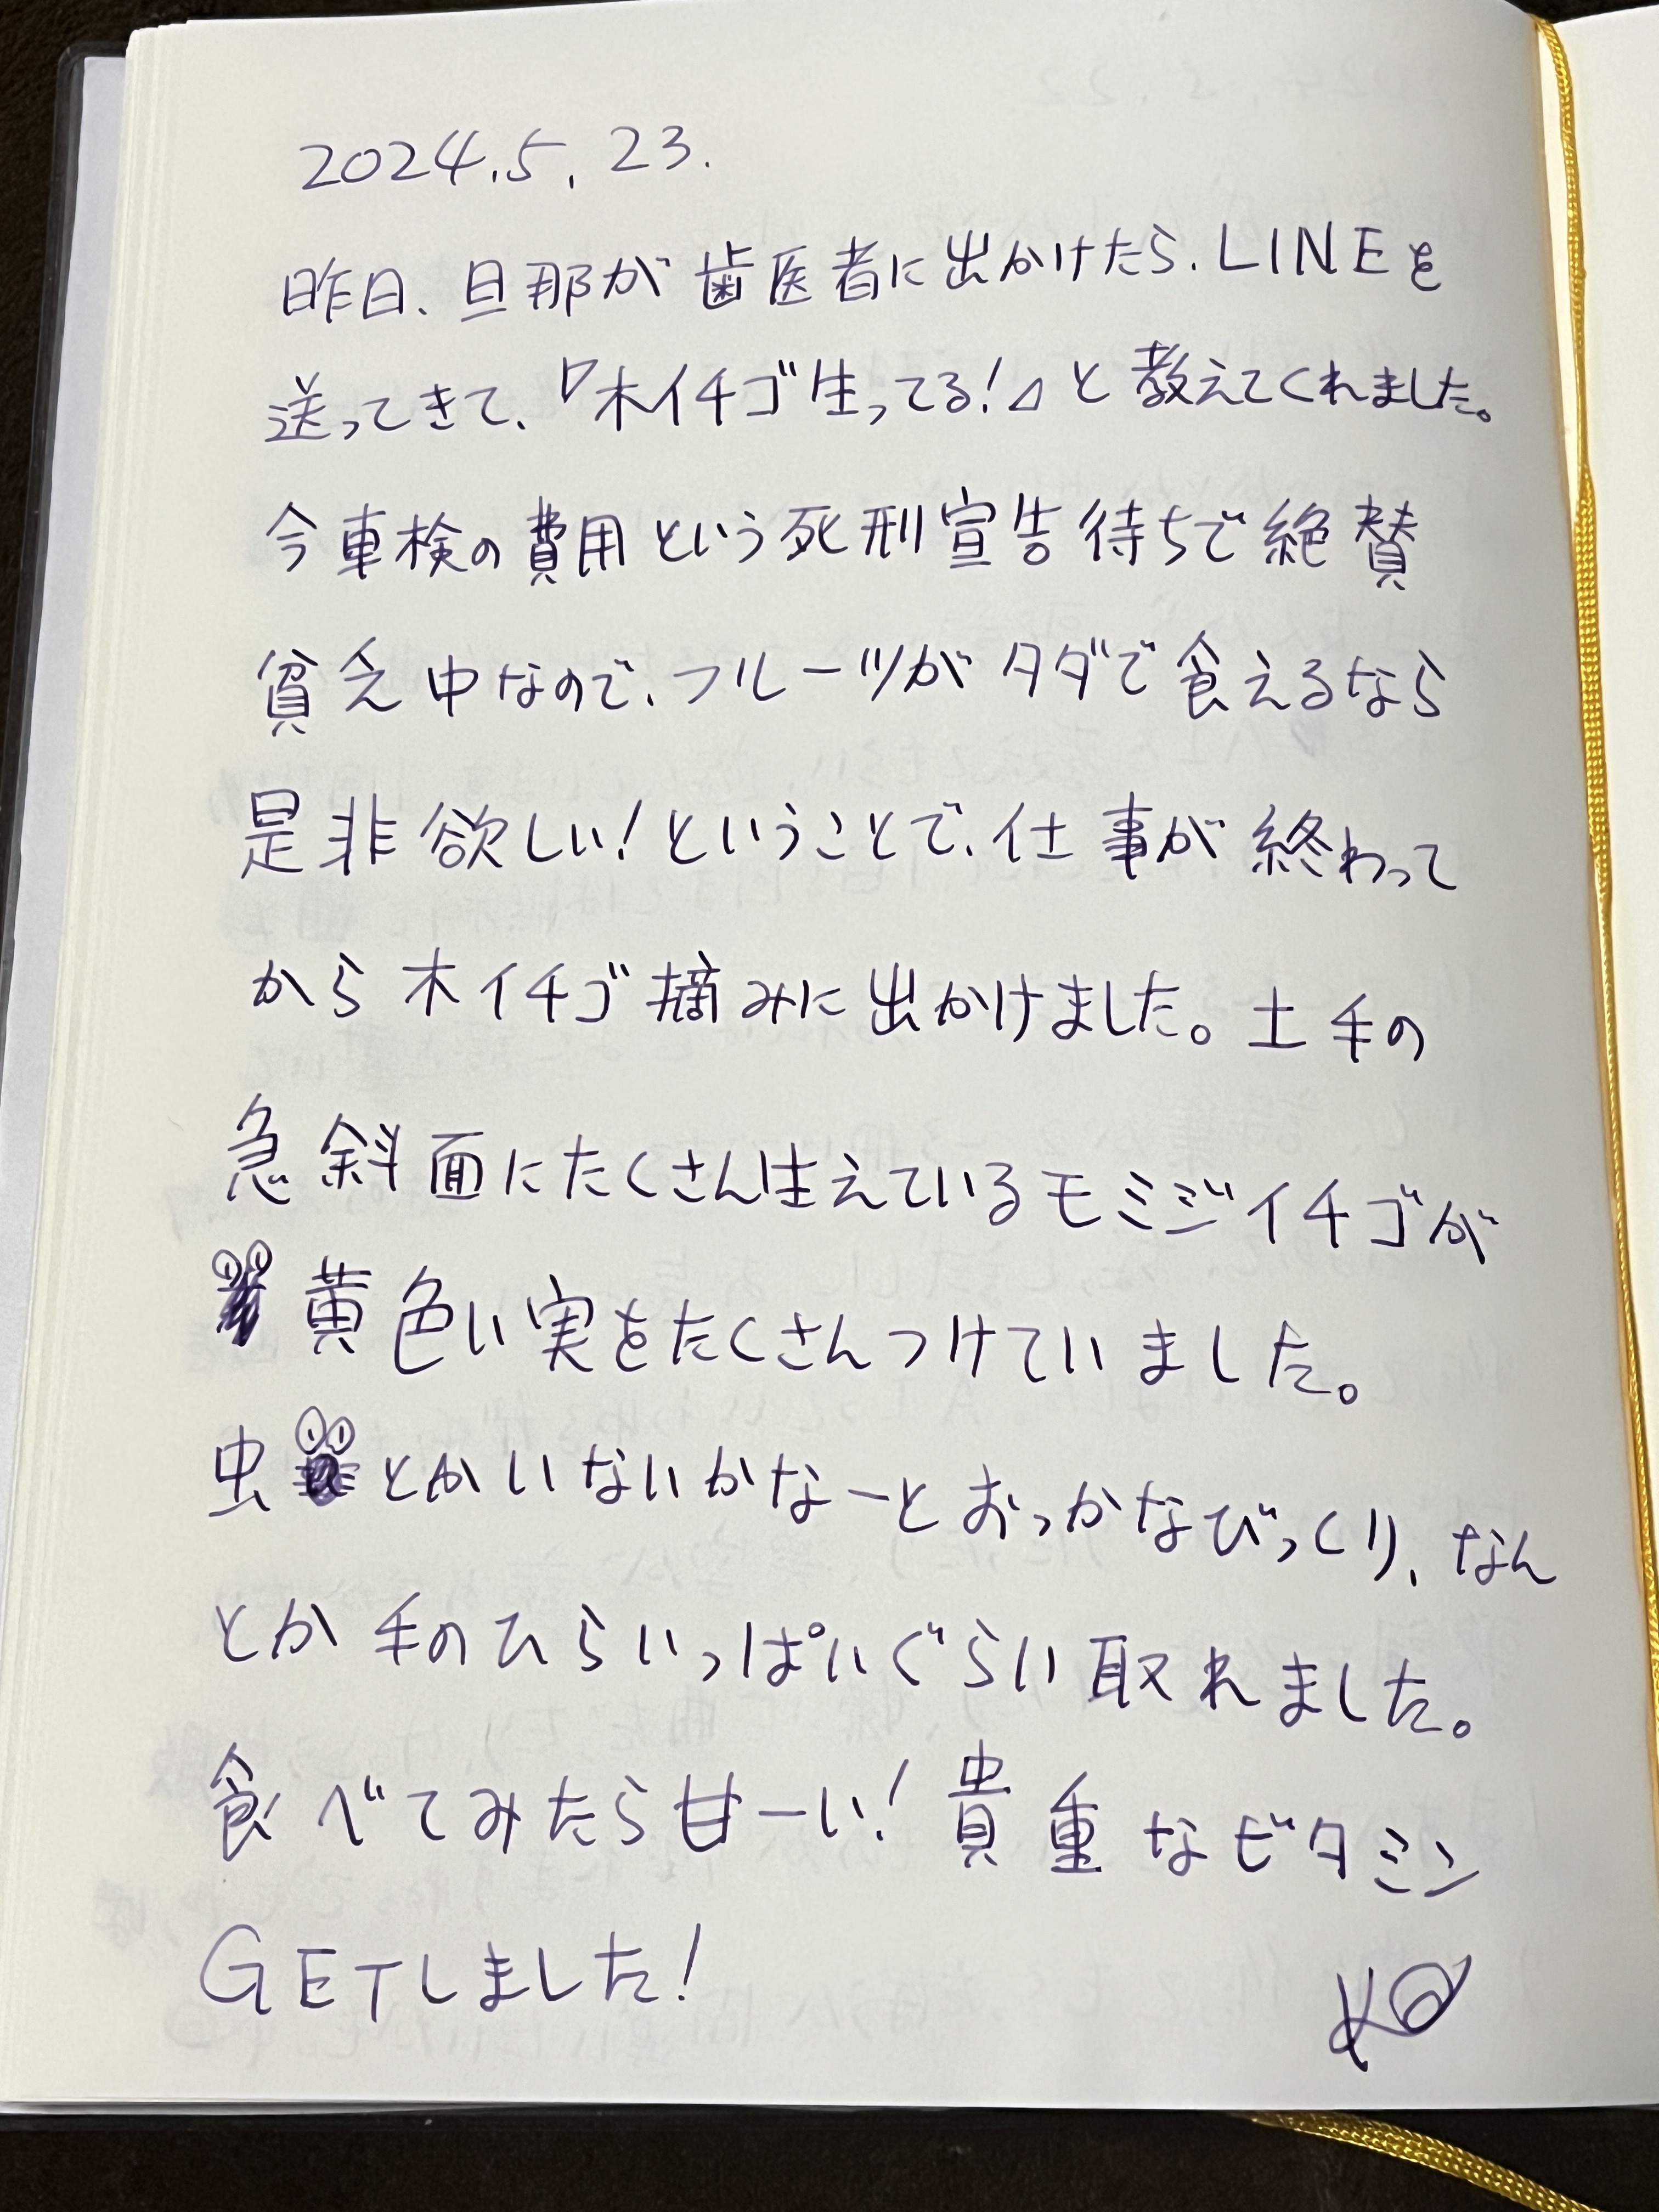 2024.5.23.
昨日、旦那が歯医者に出かけたら、LINEを
送ってきて、『木イチゴ生ってる!』と教えてくれました。
今車検の費用という死刑宣告待ちで絶賛
貧乏中なので、フルーツがタダで食えるなら
是非欲しい!ということで、仕事が終わって
から木イチゴ摘みに出かけました。土手の
急斜面にたくさん生えているモミジイチゴが
黄色い実をたくさんつけていました。
虫とかいないかなーとおっかなびっくり、なん
とか手のひらいっぱいぐらい取れました。
食べてみたら甘ーい!貴重なビタミン
GETしました!